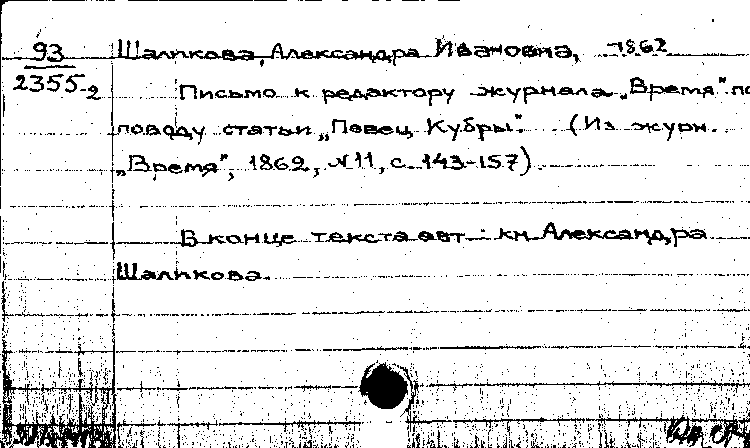 93
2355-2
Шаликова, Александра Ивановна, 1862
Письмо к редактору журнала „Время" по
поводу статьи „Певец Кубры". (Из журн.
„Время", 1862, №11, с. 143-157)
В конце текста авт.: кн. Александра
Шаликова.